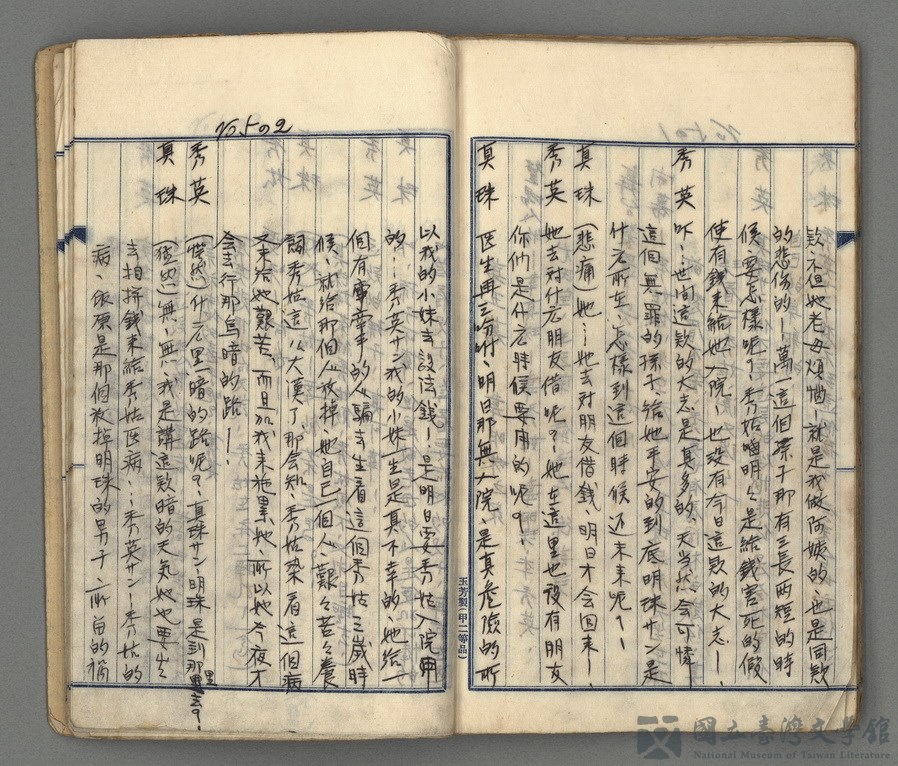 款、不但她老母煩惱、就是我做阿姨的、也是同款
的悲傷的、萬一這個孩子那有三長两短的時
候、要怎樣呢、秀姑嗎明々是給錢害死的假
使有錢來給她入院、也没有今日這款的大志、
秀英 吓、世间這款的大志是真多的、天当然会可憐
這個無罪的孩子給她平安的到底明珠サン是
什么所在、怎樣到這個時候还未来呢?、
真珠 (悲痛)她…她去对朋友借錢、明日才会回来、
秀英 她去对什么朋友借呢?她在這里也没有朋友
你们是什么時候要用的呢?、
真珠 医生再三吩咐、明日那無入院、是真危險的所
玉芳製(甲二等品)
以我的小妹去設法錢、是明日要秀姑入院用
的…秀英サン我的小妹一生是真不幸的、她给一
個有零事的人騙去生着這個秀姑三歲時
候、就给那個人放掉她自己一個人艱々苦々養
詞秀姑這么大漢了、那会知、秀姑染着這個病
又来给她艱苦、而且加我来拖累她、所以她今夜才
会去行那烏暗的路、
秀英 (愕然)什么黑暗的路呢?、真珠サン明珠是到那里去?、
真珠 無、無、我是講這款暗的天気她也要出
去拍拼錢来给秀姑医病…秀英サン、秀姑的
病、依原是那個放掉明珠的男子所留的禍
國立臺灣文學館
National Museum of Taiwan Literature